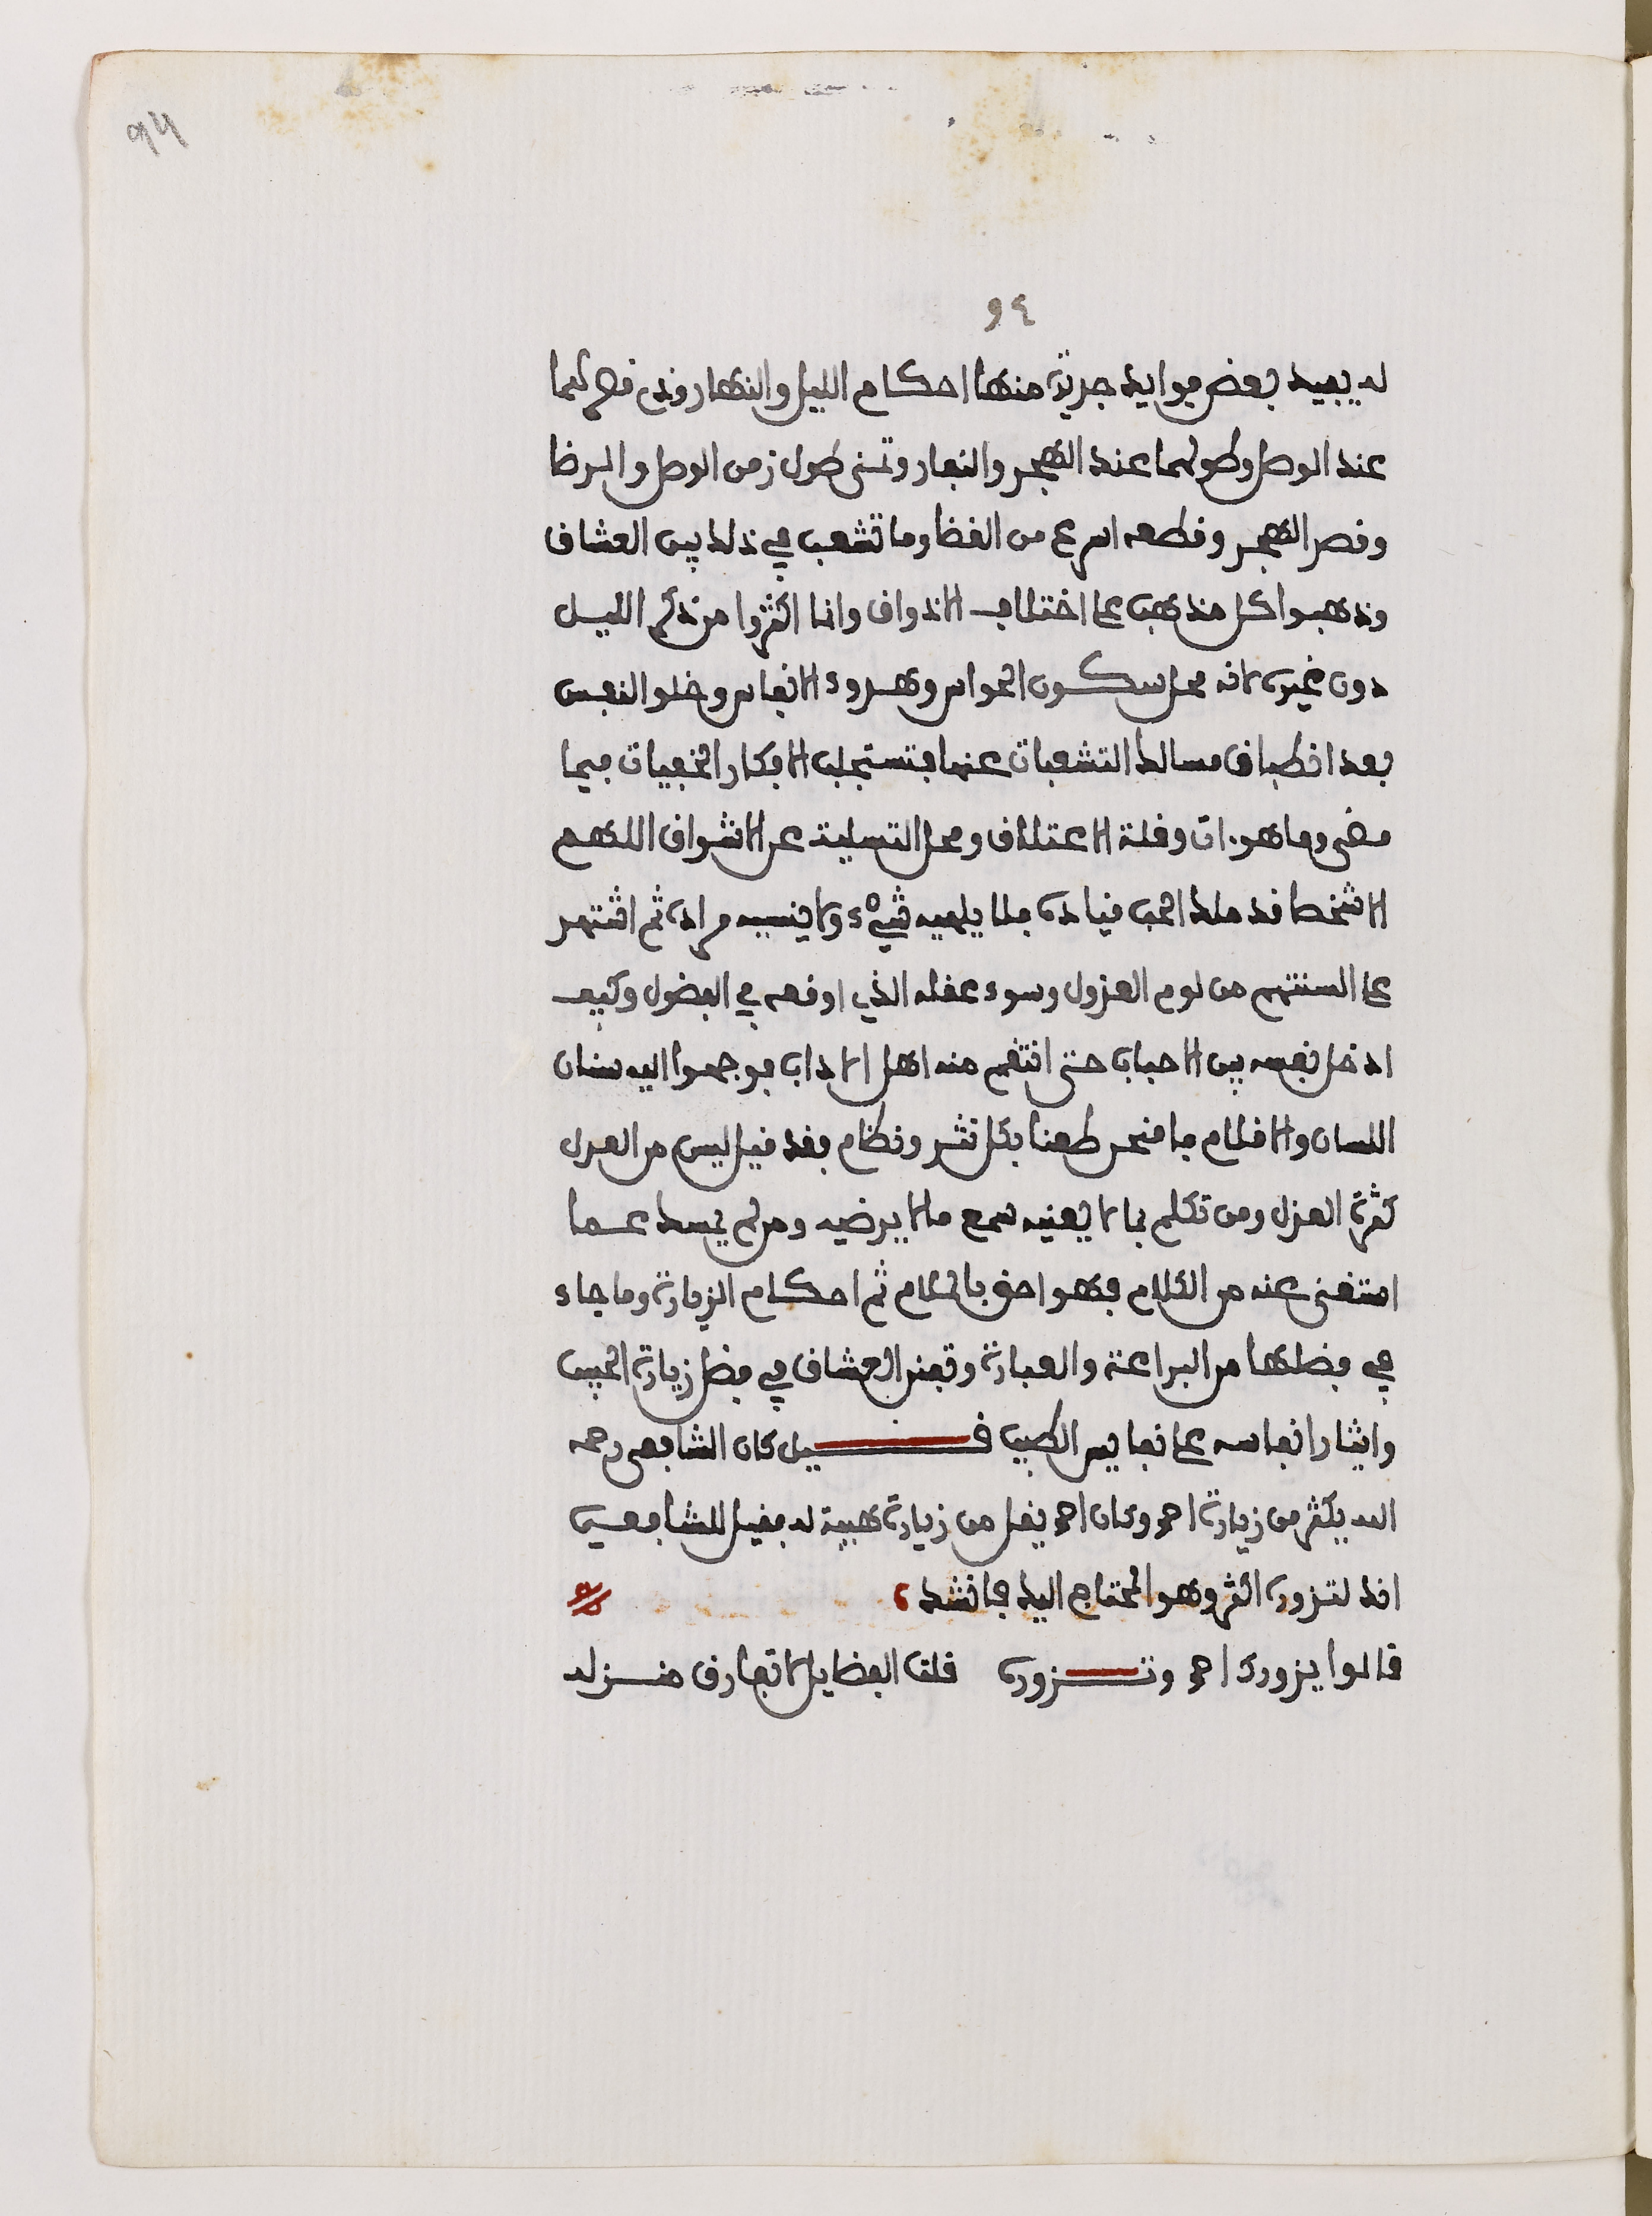 94
٩٤
له يبيد بعض فوايد جزية منها احكام الليل والنهار وذكر قصرهما
عند الوصل وطولهما عند الهجر والنفار وتمنى طول زمن الوصل والرضا
وقصر الهجر وقطعه اسرع من القضا وما تشعب في ذلك بين العشاق
وذهبوا كل مذهب على اختلاف الاذواق وانما اكثروا من ذكر الليل
دون غيره لانه محل سكون الحواس وهدوء الانفاس وخلو النفس
بعد انطباق مسالك التشعبات عنها فتستجلب الافكار الخفيات فيما
مضى وما هو ءات وقلة الاعتلاق ومحل التسلية عن الاشواق اللهم
الا شخصا قد ملك الحب قياده فلا يلهيه شيء ولا ينسيه مراده ثم اشتهر
على السنتهم من لوم العزول وسوء عقله الذي اوقعه في الفضول وكيف
ادخل نفسه بين الاحباب حتى انتقم منه اهل الاداب فوجهوا اليه سنان
اللسان والاقلام فامنحى طعنا بكل نثر ونظام فقد قيل ليس من العدل
كثرة العزل ومن تكلم بما لا يعنيه سمع ما لا يرضيه ومن لم يمسك عما
استغنى عنه من الكلام فهو احق بالملام ثم احكام الزيارة وما جاء
في فضلها من البراعة والعبارة وتفنن العشاق في فضل زيارة الحبيب
وايثار انفاسه على نفايس الطيب قيل كان الشافعي رحمه
الله يكثر من زيارة احمد وكان احمد يقل من زيارته هيبة له فقيل للشافعي
انك لتزوره اكثر وهو المحتاج اليك فانشد
قالوا يزورك احمد وتزوره قلت الفضايل لا تفارق منزله